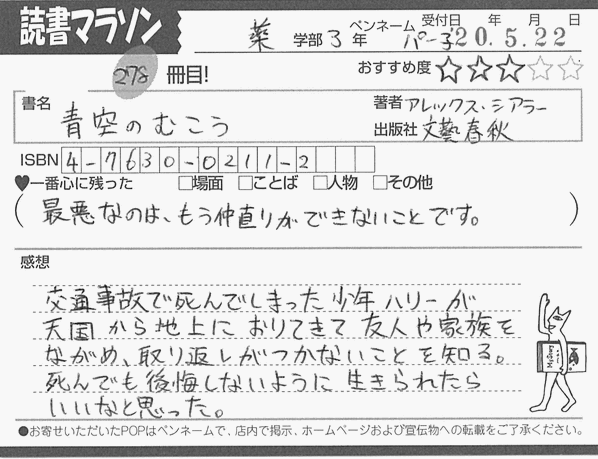 読書マラソン
薬 学部 3 年 ペンネーム パー子 受付日 年 月 日 20.5.22
278 冊目! おすすめ度 ☆☆☆☆☆
書名 青空のむこう
著者 アレックス・シアラー
出版社 文藝春秋
ISBN 4-7630-0211-2
♥一番心に残った □場面 □ことば □人物 □その他
(最悪なのは、もう仲直りができないことです。)
感想
交通事故で死んでしまった少年ハリーが
天国から地上におりてきて友人や家族を
ながめ、取り返しがつかないことを知る。
死んでも後悔しないように生きられたら
いいなと思った。
●お寄せいただいたPOPはペンネームで、店内で掲示、ホームページおよび宣伝物への転載をご了承ください。